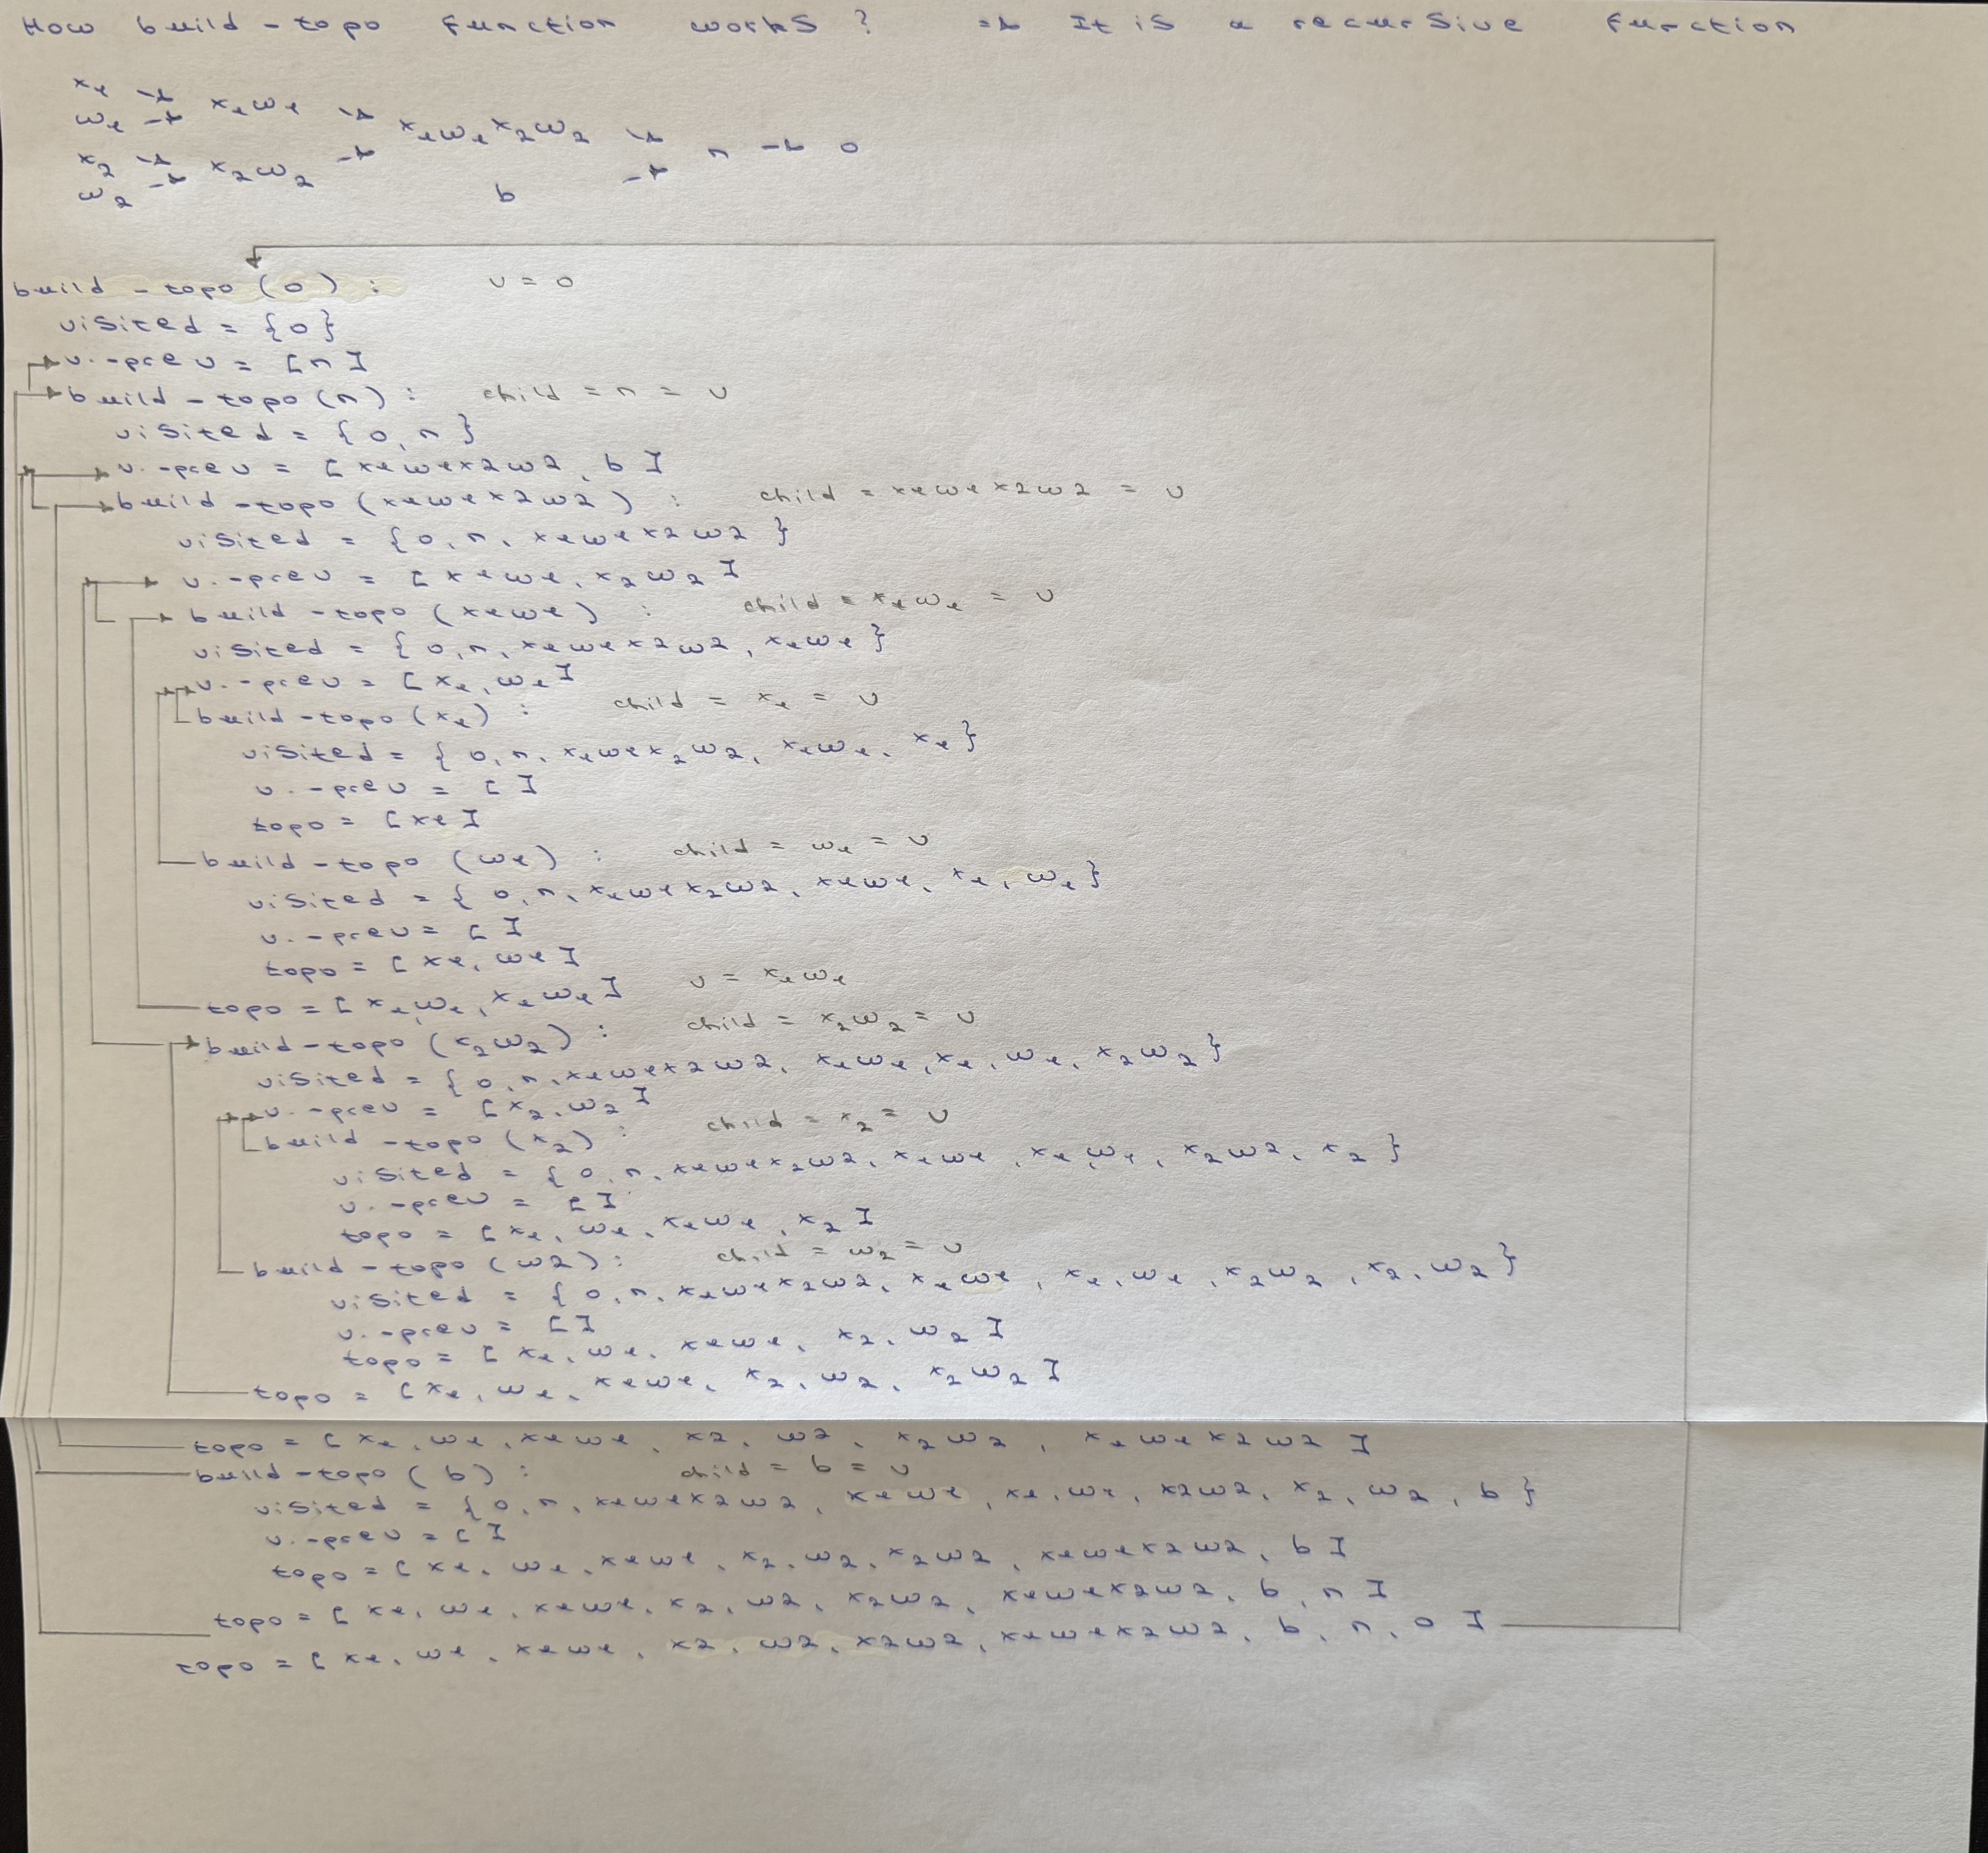 How build-topo function works? => It is a recursive function
x1
w1 → x1w1
x1w1x2w2
x2 → x2w2 → n → o
w2 b
build-topo(o): v = o
visited = {o}
v.-prev = [n]
build-topo(n): child = n = v
visited = {o, n}
v.-prev = [x1w1x2w2, b]
build-topo(x1w1x2w2): child = x1w1x2w2 = v
visited = {o, n, x1w1x2w2}
v.-prev = [x1w1, x2w2]
build-topo(x1w1): child = x1w1 = v
visited = {o, n, x1w1x2w2, x1w1}
v.-prev = [x1, w1]
build-topo(x1): child = x1 = v
visited = {o, n, x1w1x2w2, x1w1, x1}
v.-prev = []
topo = [x1]
build-topo(w1): child = w1 = v
visited = {o, n, x1w1x2w2, x1w1, x1, w1}
v.-prev = []
topo = [x1, w1]
topo = [x1, w1, x1w1] v = x1w1
build-topo(x2w2): child = x2w2 = v
visited = {o, n, x1w1x2w2, x1w1, x1, w1, x2w2}
v.-prev = [x2, w2]
build-topo(x2): child = x2 = v
visited = {o, n, x1w1x2w2, x1w1, x1, w1, x2w2, x2}
v.-prev = []
topo = [x1, w1, x1w1, x2]
build-topo(w2): child = w2 = v
visited = {o, n, x1w1x2w2, x1w1, x1, w1, x2w2, x2, w2}
v.-prev = []
topo = [x1, w1, x1w1, x2, w2]
topo = [x1, w1, x1w1, x2, w2, x2w2]
topo = [x1, w1, x1w1, x2, w2, x2w2, x1w1x2w2]
build-topo(b): child = b = v
visited = {o, n, x1w1x2w2, x1w1, x1, w1, x2w2, x2, w2, b}
v.-prev = []
topo = [x1, w1, x1w1, x2, w2, x2w2, x1w1x2w2, b]
topo = [x1, w1, x1w1, x2, w2, x2w2, x1w1x2w2, b, n]
topo = [x1, w1, x1w1, x2, w2, x2w2, x1w1x2w2, b, n, o]